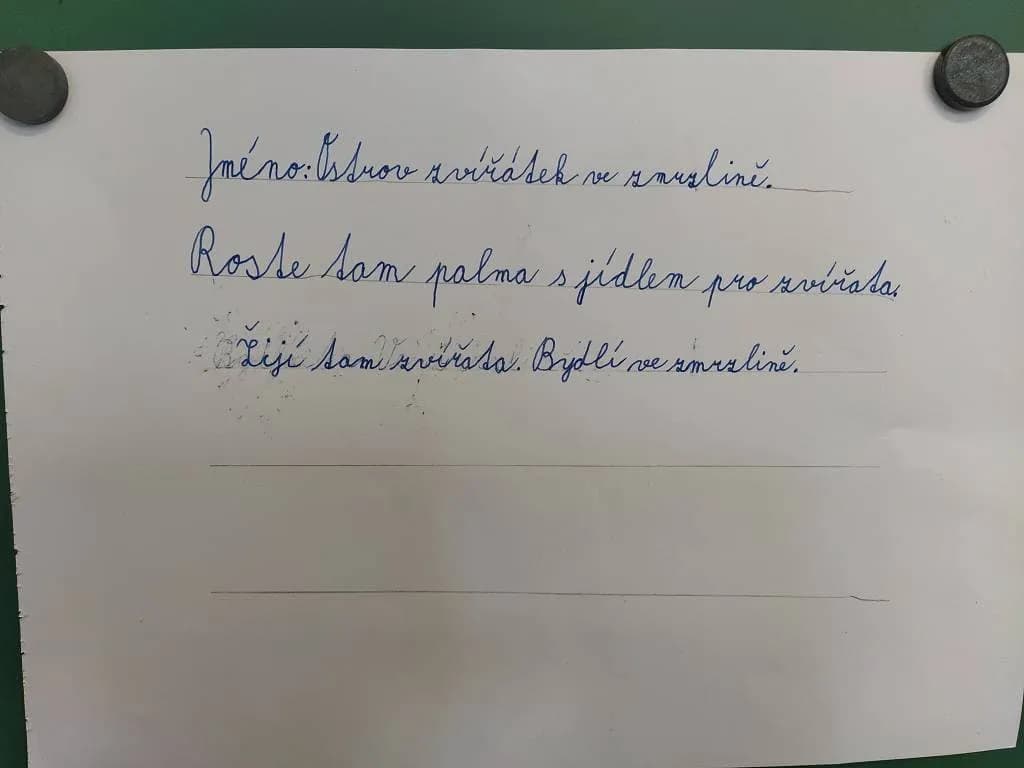 Jméno: Ostrov zvířátek ve zmrzlině.
Roste tam palma s jídlem pro zvířata.
Žijí tam zvířata. Bydlí ve zmrzlině.